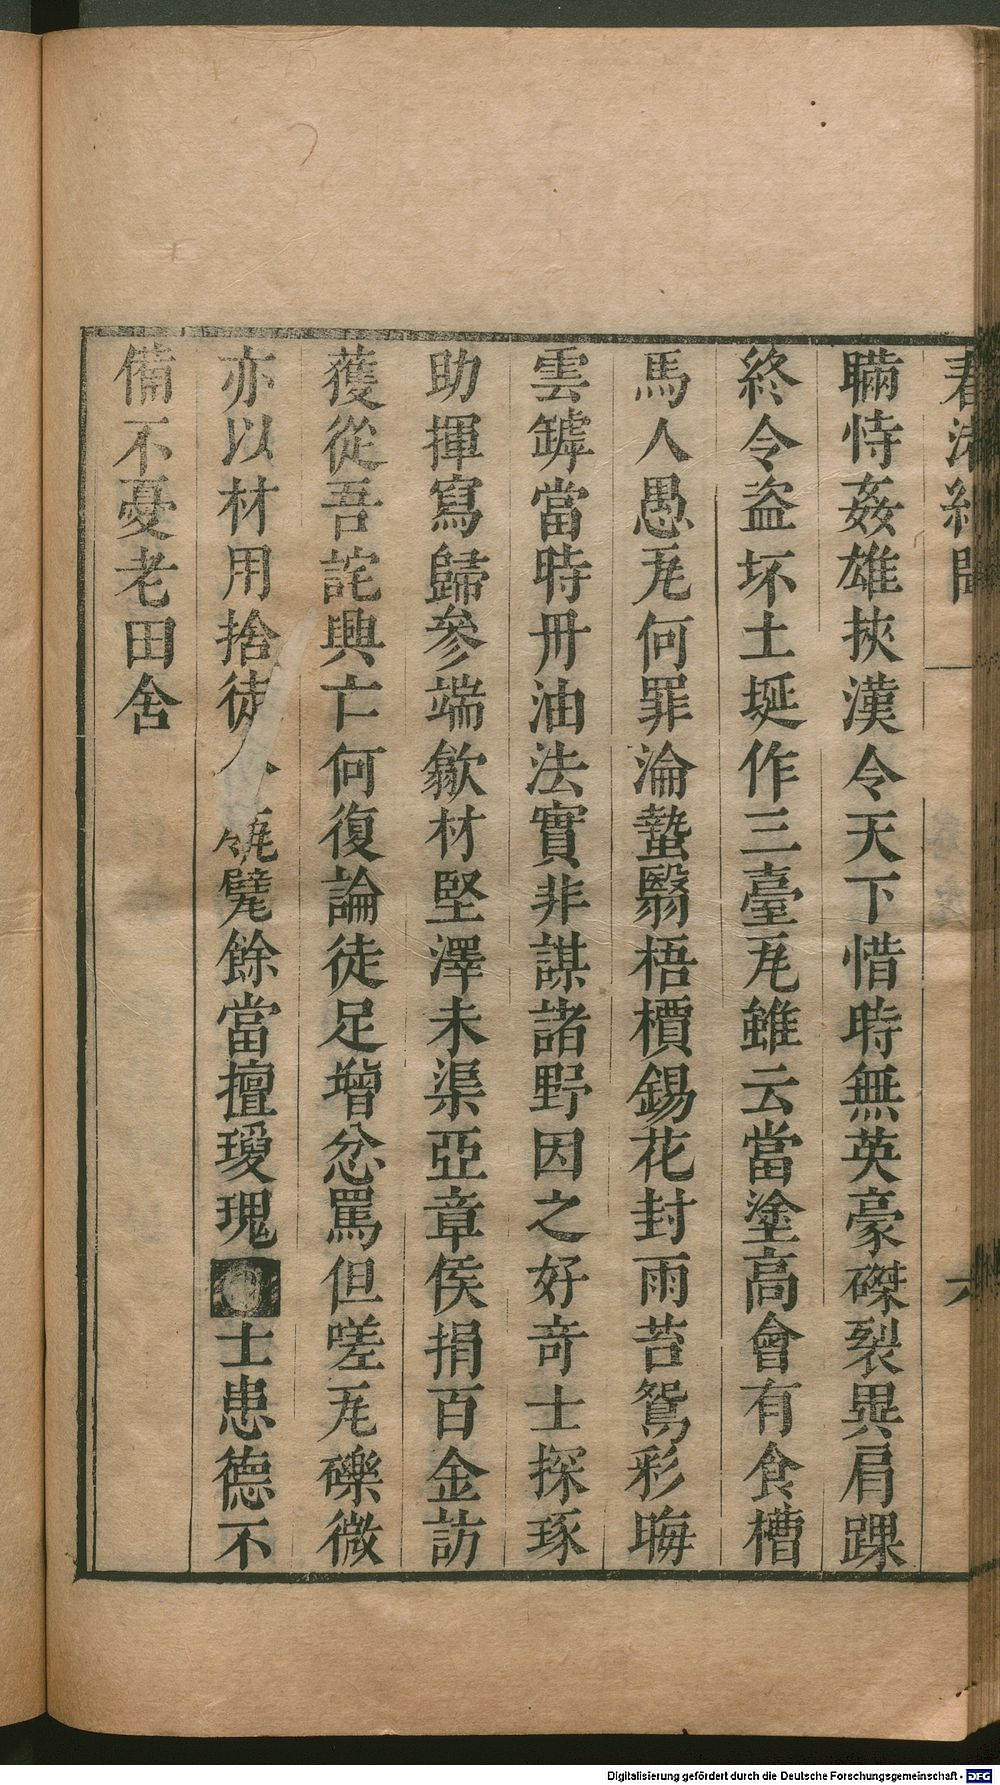 春渚紀聞
六
瞞恃姦雄挾漢令天下惜時無英豪磔裂異肩踝
終令盜坏土埏作三臺瓦雖云當塗高會有食槽
馬人愚瓦何罪淪蟄翳梧檟錫花封雨苔鴛彩晦
雲罅當時冊油法實非謀諸野因之好奇士探琢
助揮寫歸參端歙材堅澤未渠亞章侯捐百金訪
獲從吾詫興亡何復論徒足增忿罵但嗟瓦礫微
亦以材用捨徒人甓餘當擅瑷瑰士患德不
備不憂老田舍
Digitalisierung gefördert durch die Deutsche Forschungsgemeinschaft - DFG